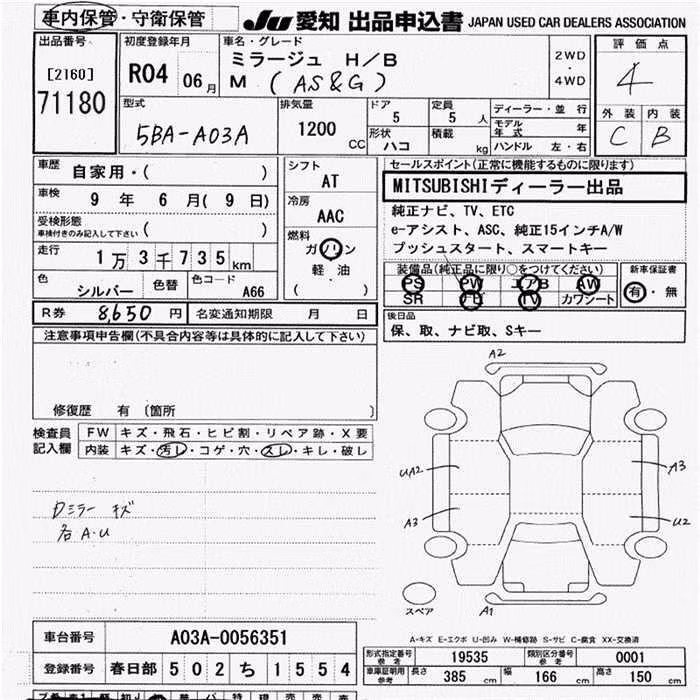 車内保管・守衛保管
JU 愛知 出品申込書 JAPAN USED CAR DEALERS ASSOCIATION
出品番号
[2160]
71180
初度登録年月
R04 06月
車名・グレード
ミラージュ H/B
M (AS&G)
2WD
・
4WD
評価点
4
外装 内装
C B
型式
5BA-A03A
排気量
1200 CC
ドア
5
定員
5人
形状
ハコ
積載
kg
ディーラー・並行
モデル年式 年
ハンドル 左・右
車歴
自家用・( )
車検
9年 6月(9日)
受検形態
車検付きのみ記入して下さい
( )
走行
1万3千735km
色
シルバー
色替
色コード
A66
シフト
AT
冷房
AAC
燃料
ガソリン
軽油
( )
セールスポイント(正常に機能するものに限ります)
MITSUBISHIディーラー出品
純正ナビ、TV、ETC
e-アシスト、ASC、純正15インチA/W
プッシュスタート、スマートキー
装備品(純正品に限り○をつけてください)
PS PW エアB AW
SR ナビ TV カワシート
新車保証書
有・無
R券 8,650円 名変通知期限 月 日
後日品
保、取、ナビ取、Sキー
注意事項申告欄(不具合内容等は具体的に記入して下さい)
修復歴 有 〔箇所 〕
検査員記入欄
FW キズ・飛石・ヒビ割・リペア跡・X要
内装 キズ・汚レ・コゲ・穴・スレ・キレ・破レ
Dミラー キズ
各A・U
A2
UA2
A3
A3
U2
A1
スペア
A-キズ E-エクボ U-凹み W-補修跡 S-サビ C-腐食 XX-交換済
車台番号 A03A-0056351
登録番号 春日部 502 ち 1554
形式指定番号 参考 19535 類別区分番号 参考 0001
車庫証明用 参考 長さ 385cm 幅 166cm 高さ 150cm